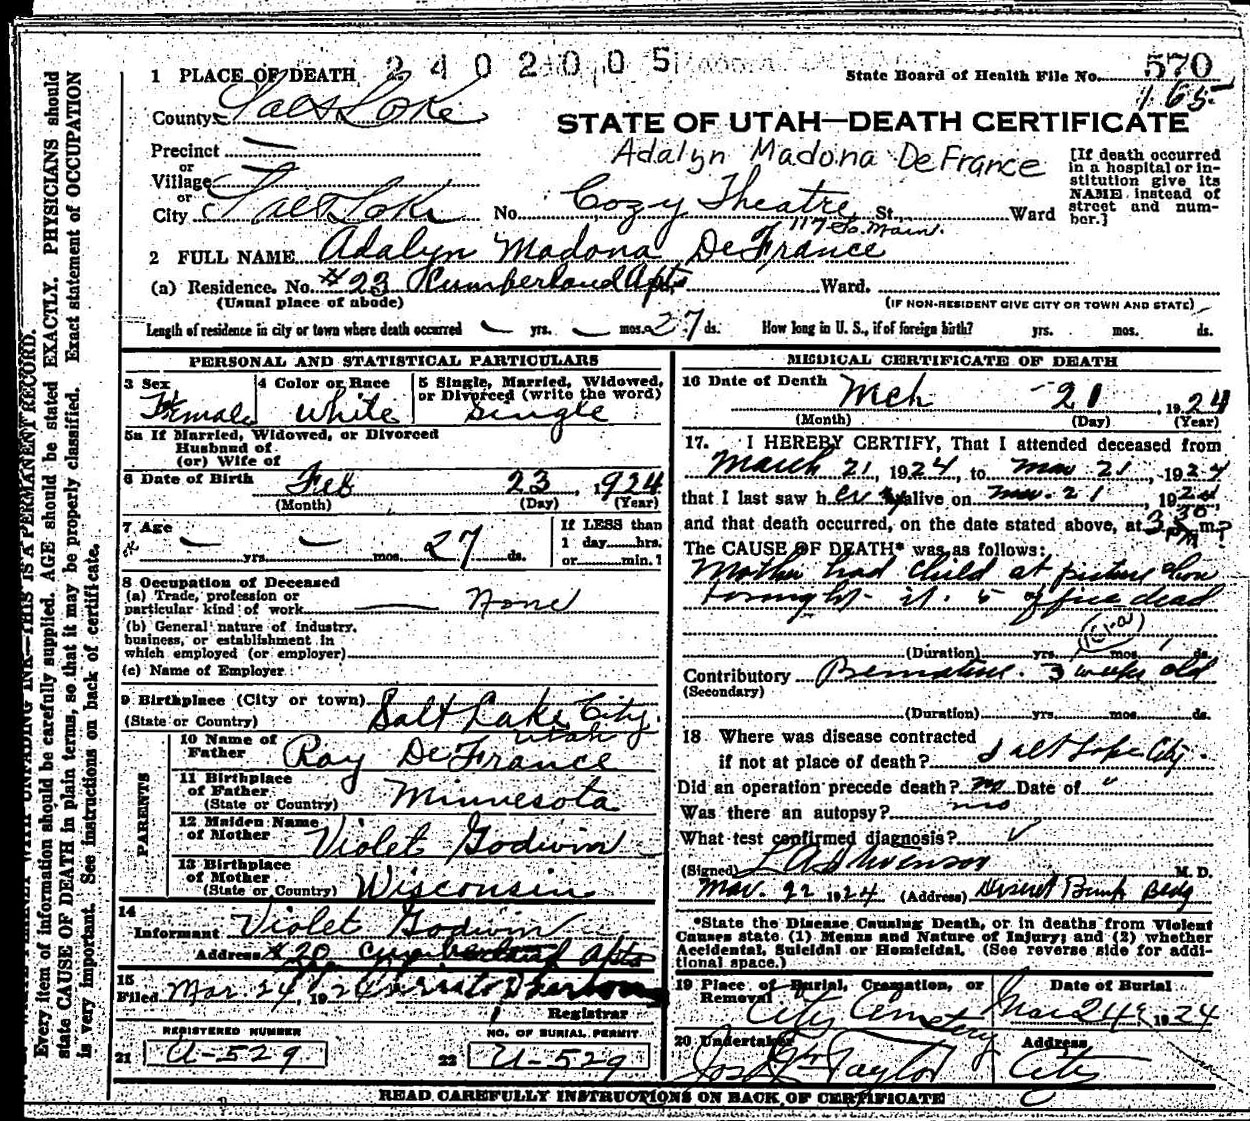 1 PLACE OF DEATH 2402005
State Board of Health File No. 570
165
County Salt Lake
STATE OF UTAH—DEATH CERTIFICATE
Adalyn Madona DeFrance
Precinct —
or
Village —
or
City Salt Lake No. Cozy Theatre St., Ward
117 So. Main.
[If death occurred
in a hospital or in-
stitution give its
NAME instead of
street and num-
ber.]
2 FULL NAME Adalyn Madona DeFrance
(a) Residence. No. #23 Cumberland Apts Ward.
(Usual place of abode) (IF NON-RESIDENT GIVE CITY OR TOWN AND STATE)
Length of residence in city or town where death occurred — yrs. — mos. 27 ds. How long in U. S., if of foreign birth? yrs. mos. ds.
PERSONAL AND STATISTICAL PARTICULARS
3 Sex 4 Color or Race 5 Single, Married, Widowed,
or Divorced (write the word)
Female White Single
5a If Married, Widowed, or Divorced
Husband of
(or) Wife of
6 Date of Birth Feb 23, 1924
(Month) (Day) (Year)
7 Age — yrs. — mos. 27 ds.
If LESS than
1 day....hrs.
or....min.?
8 Occupation of Deceased
(a) Trade, profession or
particular kind of work — None
(b) General nature of industry,
business, or establishment in
which employed (or employer)
(c) Name of Employer
9 Birthplace (City or town) Salt Lake City.
(State or Country) Utah
PARENTS
10 Name of
Father Ray DeFrance
11 Birthplace
of Father
(State or Country) Minnesota
12 Maiden Name
of Mother Violet Godwin
13 Birthplace
of Mother
(State or Country) Wisconsin
14
Informant Violet Godwin
Address #20 Cumberland Apts
15
Filed Mar. 24, 1924
Registrar
REGISTERED NUMBER NO. OF BURIAL PERMIT
21 U-529 22 U-529
MEDICAL CERTIFICATE OF DEATH
16 Date of Death Mch - 21, 1924
(Month) (Day) (Year)
17. I HEREBY CERTIFY, That I attended deceased from
March 21, 1924, to Mar 21, 1924
that I last saw her alive on Mar. 21, 1924,
and that death occurred, on the date stated above, at 3 30 P m?
The CAUSE OF DEATH* was as follows:
Mother had child at picture show
brought it to office dead
(Duration) yrs. mos. ds.
Contributory Premature. 3 weeks old
(Secondary)
(Duration) yrs. mos. ds.
18 Where was disease contracted
if not at place of death? Salt Lake City.
Did an operation precede death? no Date of "
Was there an autopsy? no
What test confirmed diagnosis? ✓
(Signed) L A Stevenson M. D.
Mar. 22 1924 (Address) Deseret Bank Bldg
*State the Disease Causing Death, or in deaths from Violent
Causes state (1) Means and Nature of Injury; and (2) whether
Accidental, Suicidal or Homicidal. (See reverse side for addi-
tional space.)
19 Place of Burial, Cremation, or
Removal Date of Burial
City Cemetery Mar 24, 1924
20 Undertaker Address
Jos Wm Taylor City
READ CAREFULLY INSTRUCTIONS ON BACK OF CERTIFICATE
THIS IS A PERMANENT RECORD.
Every item of information should be carefully supplied. AGE should be stated EXACTLY. PHYSICIANS should
state CAUSE OF DEATH in plain terms, so that it may be properly classified. Exact statement of OCCUPATION
is very important. See instructions on back of certificate.